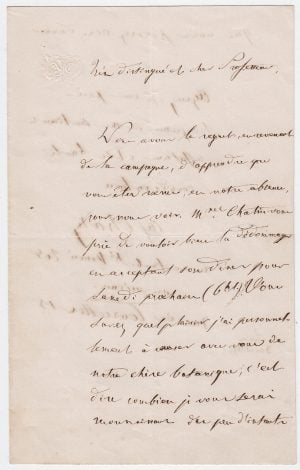 Très distingué et cher Professeur,
Nous avons le regret, en revenant
de la campagne, d'apprendre que
vous êtes venu, en notre absence,
pour nous voir. Mme Chatin vous
prie de vouloir bien la dédommager
en acceptant son dîner pour
Samedi prochain (6h ½). Vous
savez quel plaisir j'ai personnel-
lement à causer avec vous de
notre chère botanique, c'est
dire combien je vous serai
reconnaissant des peu d'instants